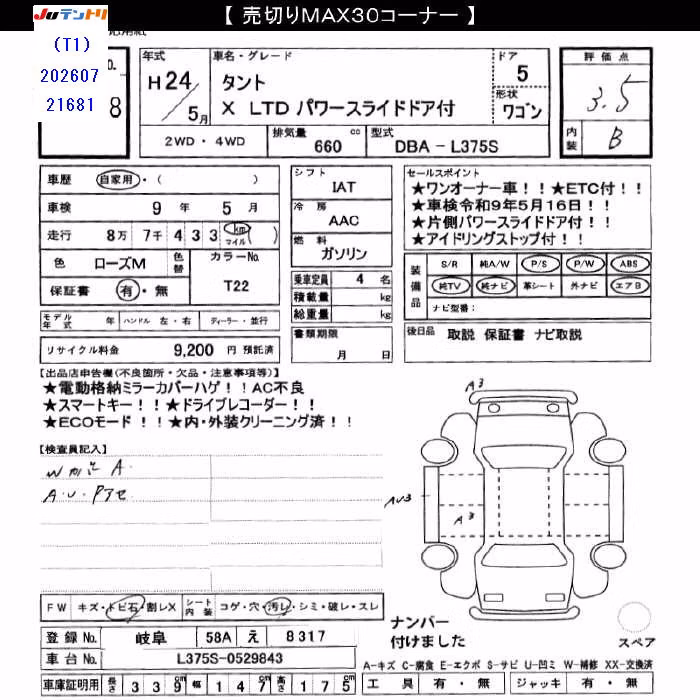 【 売切りMAX30コーナー 】
JUテントリ
(T1)
202607
21681
8
年式
H24/5月
車名・グレード
タント
X LTD パワースライドドア付
ドア
5
形状
ワゴン
評価点
3.5
内装
B
2WD・4WD
排気量 660 cc
型式 DBA-L375S
車歴 自家用・( )
車検 9年 5月
走行 8万 7千 4 3 3 km マイル( )
色 ローズM
色替
カラーNo.
T22
保証書 有・無
シフト
IAT
冷房
AAC
燃料
ガソリン
乗車定員 4 名
積載量 kg
総重量 kg
書類期限
月 日
セールスポイント
★ワンオーナー車！！★ETC付！！
★車検令和9年5月16日！！
★片側パワースライドドア付！！
★アイドリングストップ付！！
装備品
S/R 純A/W P/S P/W ABS
純TV 純ナビ 革シート 外ナビ エアB
ナビ型番：
モデル年式 年 ハンドル 左・右 ディーラー・並行
後日品 取説 保証書 ナビ取説
リサイクル料金 9,200 円 預託済
【出品店申告欄(不良箇所・欠品・注意事項等)】
★電動格納ミラーカバーハゲ！！AC不良
★スマートキー！！★ドライブレコーダー！！
★ECOモード！！★内・外装クリーニング済！！
【検査員記入】
A.U.
A3
AU3
A3
FW キズ・トビ石・割レX
シート内装 コゲ・穴・汚レ・シミ・破レ・スレ
ナンバー
付けました
スペア
登録No. 岐阜 58A え 8317
車台No. L375S-0529843
A-キズ C-腐食 E-エクボ S-サビ U-凹ミ W-補修 XX-交換済
車庫証明用 長さ 3 3 9cm 幅 1 4 7cm 高さ 1 7 5cm
工具 有・無 ジャッキ 有・無